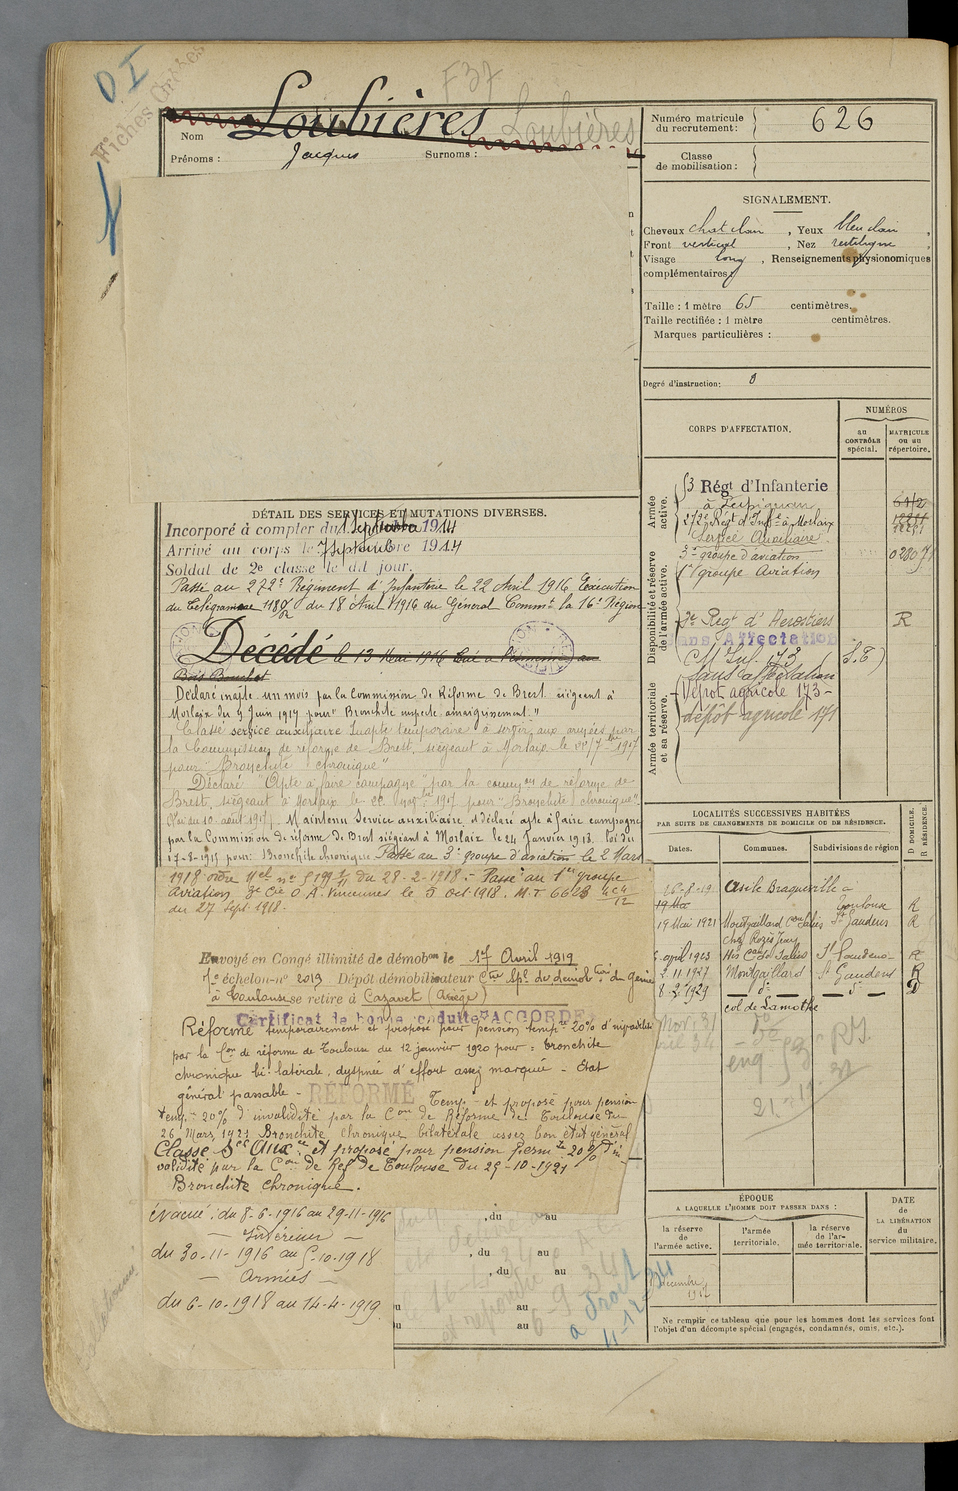 O I
Fiches
F 37
Nom Loubières Loubières
Prénoms : Jacques Surnoms :
Numéro matricule du recrutement: 626
Classe de mobilisation :
SIGNALEMENT.
Cheveux chat clair, Yeux bleu clair,
Front vertical, Nez rectiligne,
Visage long, Renseignements physionomiques
complémentaires:
Taille : 1 mètre 65 centimètres.
Taille rectifiée : 1 mètre centimètres.
Marques particulières :
Degré d'instruction: 0
CORPS D'AFFECTATION.
NUMÉROS
au CONTRÔLE spécial.
MATRICULE ou au répertoire.
Armée active.
53 Régt d'Infanterie
à Perpignan
272e Régt d'Infie à Morlaix
Service Auxiliaire
Disponibilité et réserve de l'armée active.
3e groupe d'aviation
1er groupe Aviation
3e Regt d'Aérostiers R
Sans Affectation
C M Inf. 173 S.T)
Sans affectation
Armée territoriale et sa réserve.
Dépôt agricole 173 -
dépôt agricole 171
DÉTAIL DES SERVICES ET MUTATIONS DIVERSES.
Incorporé à compter du 1 Septembre 1914
Arrivé au corps le 7 septembre 1914
Soldat de 2e classe le dit jour.
Passé au 272e Régiment d'Infanterie le 22 Avril 1916 Exécution
du télégramme 1180/R du 18 Avril 1916 du Général Commt la 16e Région
Décédé le 13 Mai 1916 tué à l'ennemi au
Bois Bouchot
Déclaré inapte un mois par la Commission de Réforme de Brest siégeant à
Morlaix du 9 Juin 1917 pour "Bronchite suspecte amaigrissement."
Classé service auxiliaire Inapte temporaire à servir aux armées par
la Commission de réforme de Brest, siégeant à Morlaix le 7bre 1917
pour "Bronchite chronique"
Déclaré "Apte à faire campagne" par la common de réforme de
Brest, siégeant à Morlaix le 1917 pour "Bronchite chronique"
(Loi du 10 août 1917). Maintenu Service auxiliaire et déclaré apte à faire campagne
par la Commission de réforme de Brest siégeant à Morlaix le 24 Janvier 1918. loi du
17-8-1915 pour: Bronchite chronique Passé au 3e groupe d'aviation le 2 Mars
1918 ordre Mel no 5199 du 28-2-1918 - Passé au 1er groupe
Aviation 3e Cie O.A. Vincennes le 5 Oct 1918. M.T 6623 4c4/12
du 27 Sept. 1918.
Envoyé en Congé illimité de démobon le 17 Avril 1919
1e échelon - no 2013 Dépôt démobilisateur Ctre Spl du démobtion du génie
à Toulouse se retire à Cazavet (Ariège)
Certificat de bonne conduite ACCORDÉ
Réformé temporairement et proposé pour pension tempre 20% d'invalidité
par la Con de réforme de Toulouse du 12 janvier 1920 pour : bronchite
chronique bi-latérale, dyspnée d'effort assez marquée - Etat
général passable - RÉFORMÉ Temp - et proposé pour pension
temp - 20% d'invalidité par la Con de Réforme de Toulouse du
26 Mars 1921 Bronchite chronique bilatérale assez bon état général
Classé Sce Auxre et proposé pour pension perm te 20% d'in-
validité par la Con de Réf de Toulouse du 29-10-1921
Bronchite chronique.
évacué : du 8-6-1916 au 29-11-1916
— Intérieur —
du 30-11-1916 au 5-10-1918
— Armées —
du 6-10-1918 au 14-4-1919
, du au
, du au
, du au
au
au
LOCALITÉS SUCCESSIVES HABITÉES
PAR SUITE DE CHANGEMENTS DE DOMICILE OU DE RÉSIDENCE.
Dates. Communes. Subdivisions de région
D DOMICILE. R RÉSIDENCE.
16-8-19 Asile Braqueville -
Toulouse R
19 Mai 1921 Montgaillard Con Salies St Gaudens R
chez Rozès Jean
avril 1923 His Con de Salies St Gaudens R
2-11-1927 Montgaillard St Gaudens R
8-2-1929 do — do — D
col de Lamothe
ÉPOQUE
A LAQUELLE L'HOMME DOIT PASSER DANS :
la réserve de l'armée active.
l'armée territoriale.
la réserve de l'armée territoriale.
DATE DE LA LIBÉRATION du service militaire.
Ne remplir ce tableau que pour les hommes dont les services font
l'objet d'un décompte spécial (engagés, condamnés, omis, etc.).